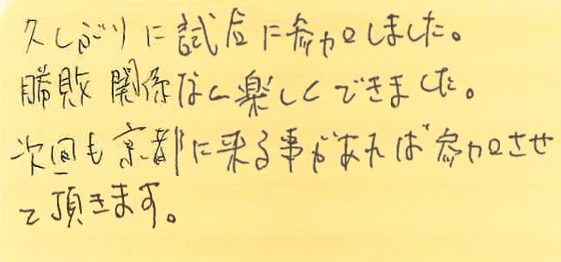 久しぶりに試合に参加しました。
勝敗関係なく楽しくできました。
次回も京都に来る事があれば参加させ
て頂きます。